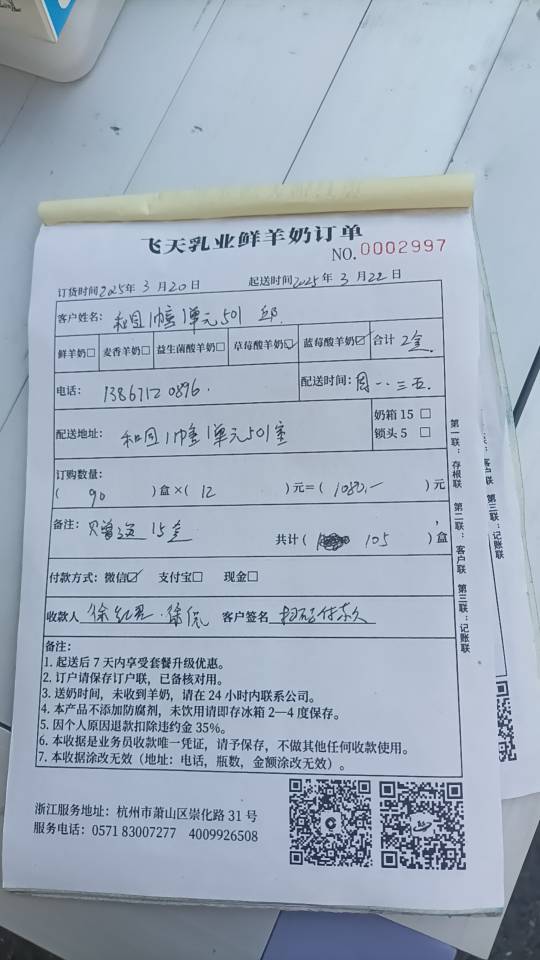 飞天乳业鲜羊奶订单
NO.0002997
订货时间2025年 3月20日 起送时间2025年 3月22日
客户姓名: 和园1幢1单元501 邱
鲜羊奶□ 麦香羊奶□ 益生菌酸羊奶□ 草莓酸羊奶☑ 蓝莓酸羊奶☑ 合计 2盒
电话: 13867120896. 配送时间: 周一.三五.
配送地址: 和园1幢1单元501室 奶箱 15 □
锁头 5 □
订购数量:
( 90 )盒×( 12 )元=( 1080.- )元
备注: 15盒 共计( 105 )盒
付款方式: 微信☑ 支付宝□ 现金□
收款人 徐 客户签名 扫码付款
备注:
1. 起送后 7 天内享受套餐升级优惠。
2. 订户请保存订户联，已备核对用。
3. 送奶时间，未收到羊奶，请在 24 小时内联系公司。
4. 本产品不添加防腐剂，未饮用请即存冰箱 2—4 度保存。
5. 因个人原因退款扣除违约金 35%。
6. 本收据是业务员收款唯一凭证，请予保存，不做其他任何收款使用。
7. 本收据涂改无效（地址：电话，瓶数，金额涂改无效）。
浙江服务地址：杭州市萧山区崇化路 31 号
服务电话：0571 83007277 4009926508
第一联：存根联 第二联：客户联 第三联：记账联
客户联 第三联：记账联